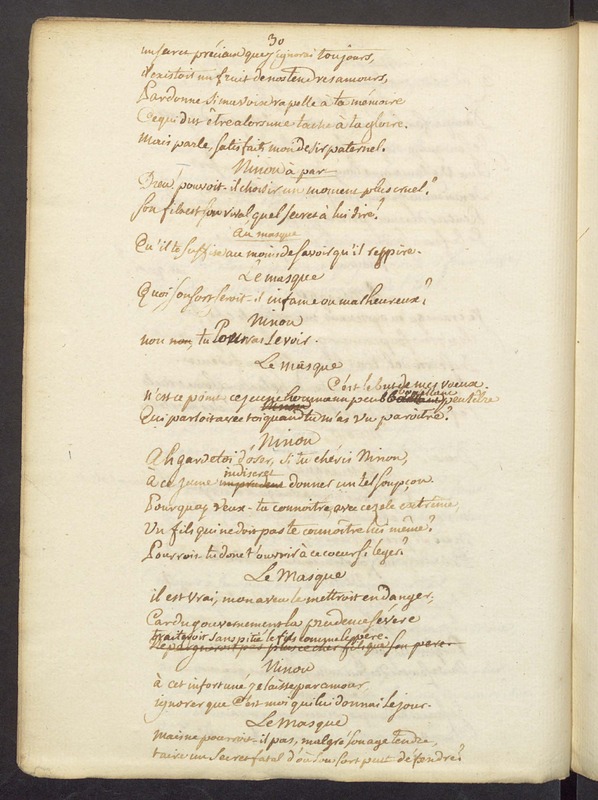 30
un secret précieux que j'ignorai toujours,
il existoit un fruit de nos tendres amours,
Pardonne si ma voix rapelle à ta mémoire
Ce qui dut être alors une tache à ta gloire.
Mais parle, satisfaits mon desir paternel.
Ninon à par
Dieu! pouvoit-il choisir un moment plus cruel?
son fils est son rival, quel secret à lui dire?
au masque
Qu'il te suffise au moins de savoir qu'il respire.
Le masque
Quoi son sort seroit-il infame ou malheureux?
Ninon
non non, tu Pourras le voir.
Le masque
C'est le but de mes voeux.
n'est ce point ce jeune homme un peu brillant peutêtre
Ninon
Qui parloit avec toi quand tu m'as vu paroître?
Ninon
Ah garde toi d'oser, si tu chéris Ninon,
indiscret
à ce jeune imprudent donner un tel soupçon.
Pourquoy veux-tu connoitre avec ce zele extrême,
Un fils qui ne doit pas te connoître lui même?
Pourrois tu donc t'ouvrir à ce coeur si léger?
Le Masque
il est vrai, mon aveu le mettroit en danger;
Car du gouvernement la prudence sévére
traiteroit sans pitié le fils comme le pere.
N'épargneroit pas plus ce cher fils que son pere.
Ninon
à cet infortuné je laisse par amour
ignorer que C'est moi qui lui donnai le jour.
Le Masque
Mais ne pourroit-il pas, malgré son age tendre,
taire un secret fatal d'où son sort put dépendre?